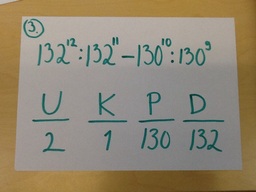 3.
132¹²:132¹¹−130¹⁰:130⁹
U K P D
2 1 130 132